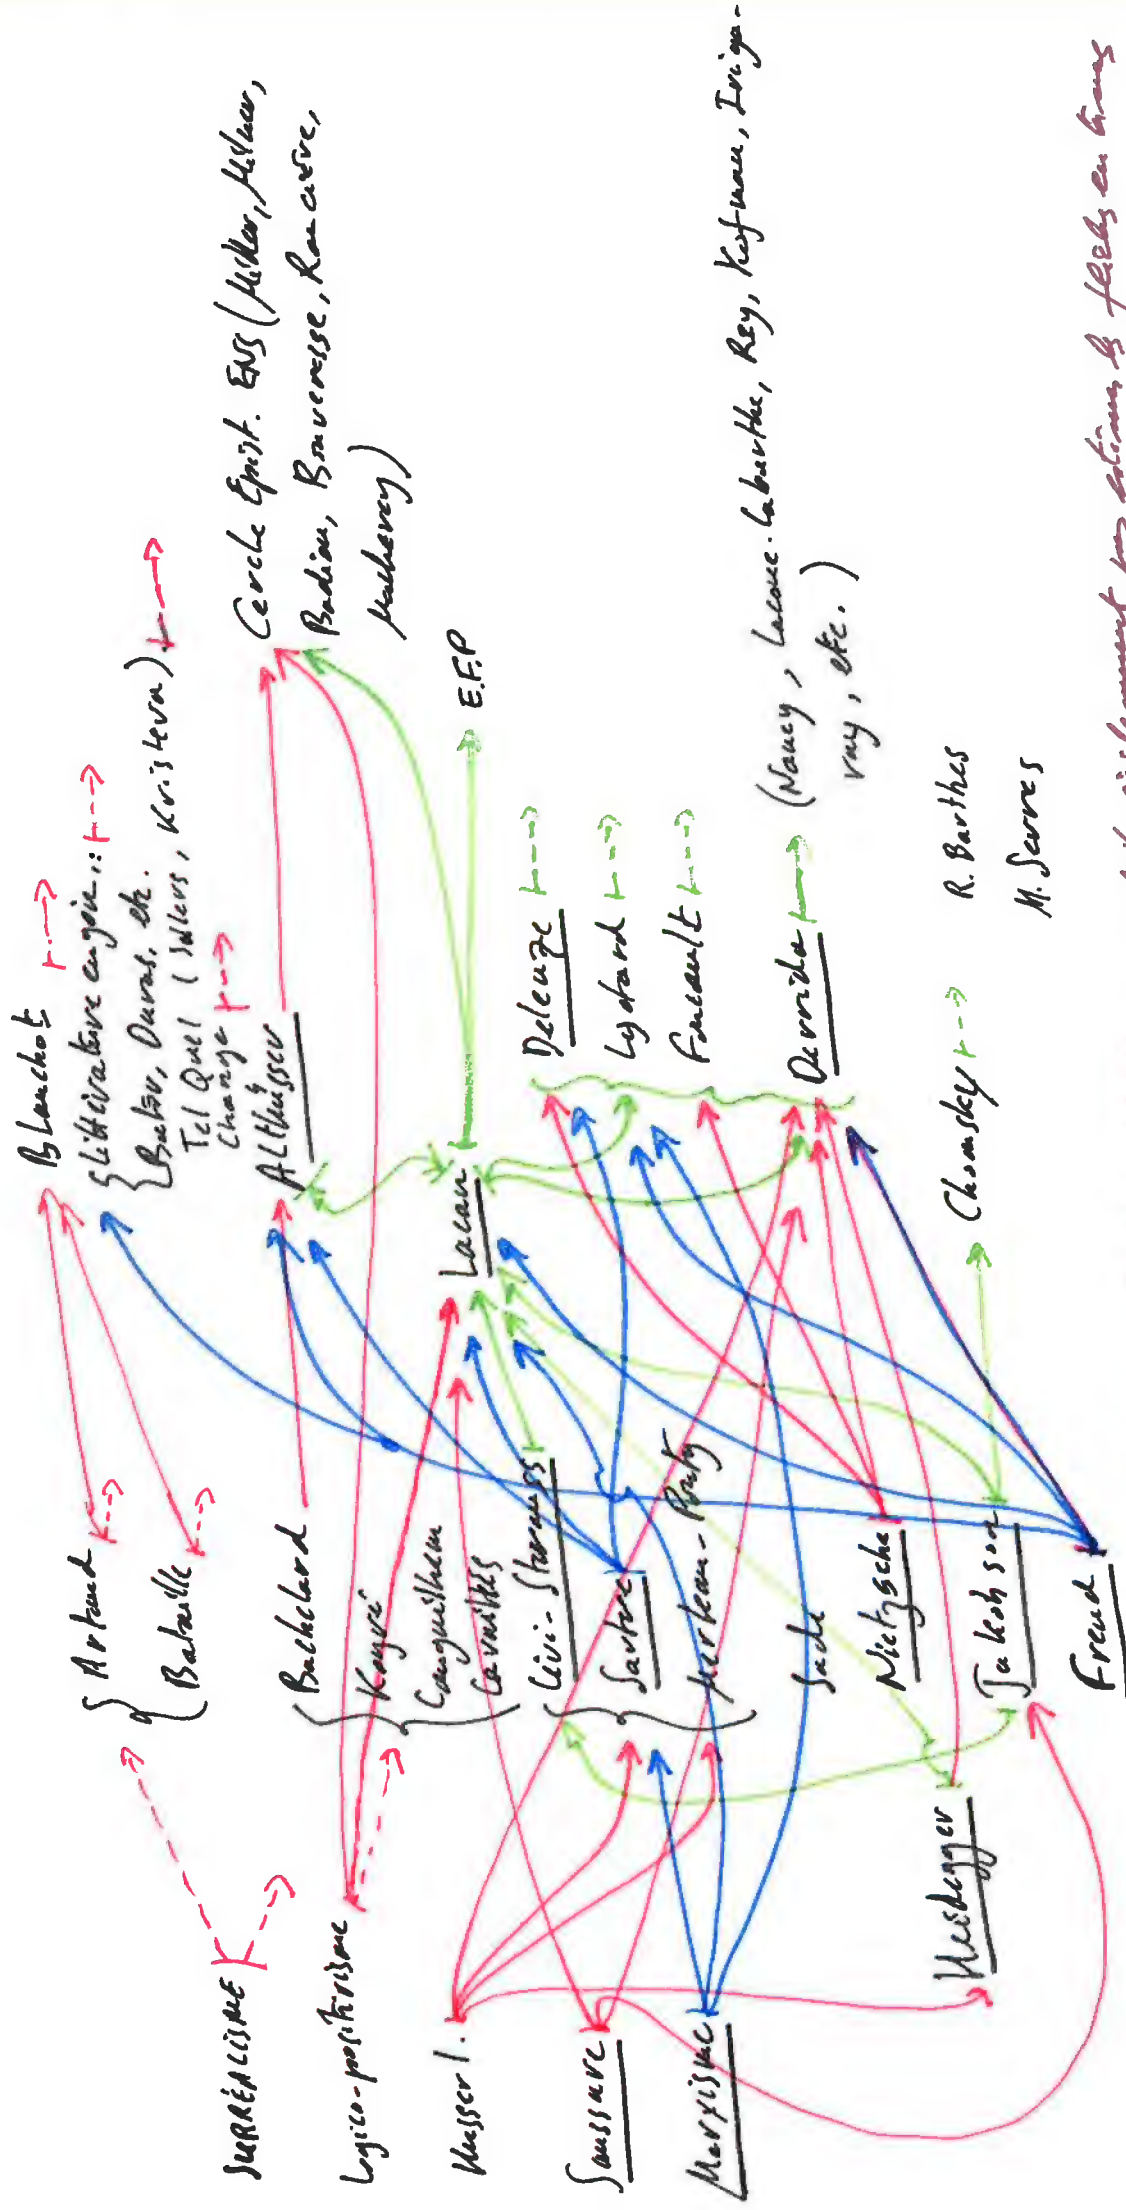 SURRÉALISME
Logico-positivisme
Husserl.
Saussure
Marxisme
Heidegger
Artaud
Bataille
Bachelard
Koyré
Canguilhem
Cavaillès
Lévi-Strauss
Sartre
Merleau-Ponty
Sade
Nietzsche
Jakobson
Freud
Blanchot
Butor, Duras, etc.
Tel Quel (Sollers, Kristeva)
Change
Althusser
Lacan
Deleuze
Lyotard
Foucault
Derrida
Chomsky
Cercle Epist. ENS (Miller, Milner,
Badiou, Bouveresse, Rancière,
Macherey)
E.F.P
(Nancy, Lacoue-Labarthe, Rey, Kofman, Iriga-
ray, etc.)
R. Barthes
M. Serres